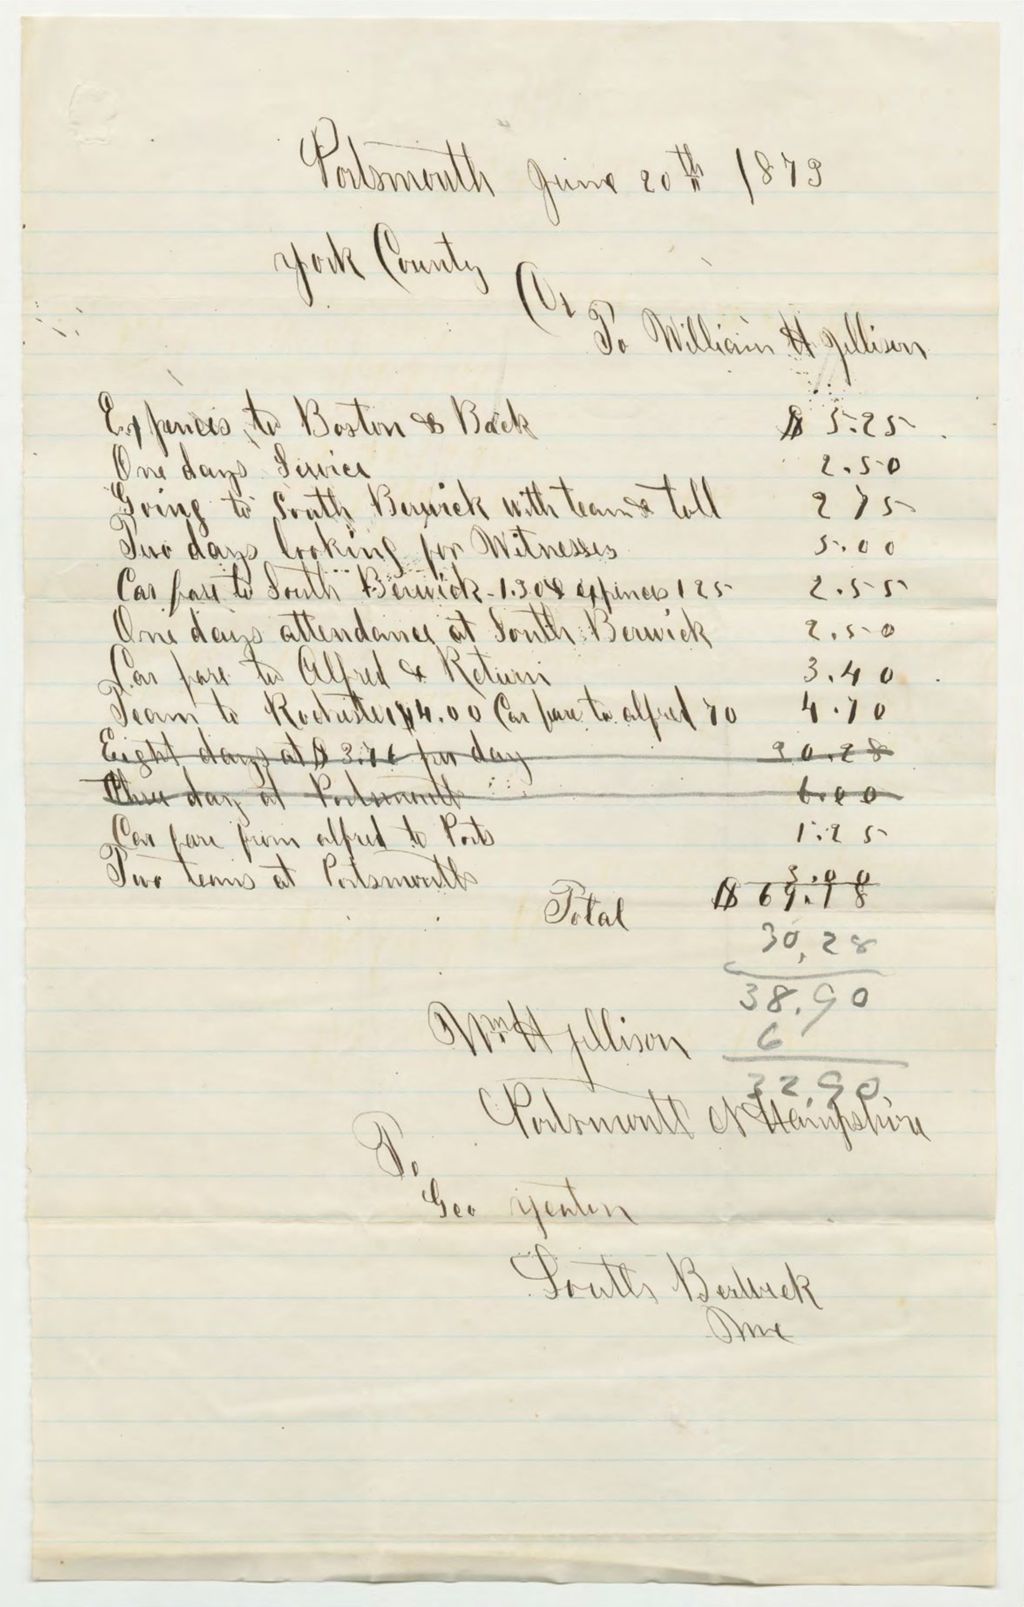 Portsmouth June 20th 1873
York County
Dr
To William H Jellison
Expences to Boston & Back $5.25
One days Service 2.50
Going to South Berwick with team & toll 2 75
Two days looking for Witnesses 5.00
Car fare to South Berwick - 1.30 & expences 1 25 2.55
One days attendance at South Berwick 2.50
Car fare to Alfred & Return 3.40
Team to Rochester $4.00 Car fare to alfred 70 4.70
Eight days at $3.76 per day 30.28
Three day at Portsmouth 6.00
Car fare from alfred to Ports 1.25
Two teams at Portsmouth 3.00
Total $69.18
30,28
38.90
6
32.90
Wm H Jellison
Portsmouth N Hampshire
To
Geo Yeaton
South Berwick
Me